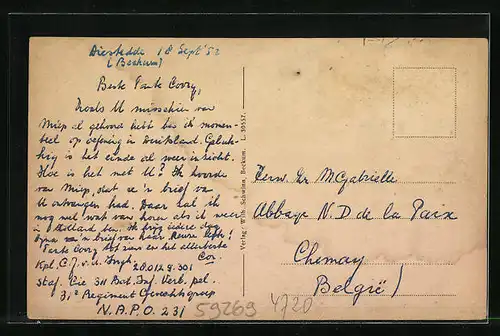 Diestedde 18 Sept '52
(Beckum)
Beste Tante Corry,
Zoals U misschien van
Miep al gehoord hebt ben ik momen-
teel op oefening in Duitsland. Geluk-
kig is het einde al weer in zicht.
Hoe is het met U? Ik hoorde
van Miep, dat ze 'n brief van
U ontvangen had. Daar zal ik
nog wel wat van horen als ik weer
in Holland ben. Ik krijg iedere dag
bijna van m'n brief van haar.
Tante Corry tot ziens en het allerbeste
Cor.
Kpl. C. J. v. d.
20.01.29.301
Staf. Cie 311 Bat. Inf. Verb. pel.
31e Regiment Gevechtsgroep
N.A.P.O. 231
Verlag: Wilh. Schwinn, Beckum. L. 30557.
Eerw. Zr M. Gabrielle
Abbaye N. D. de la Paix
Chemay
België)
59269 4720